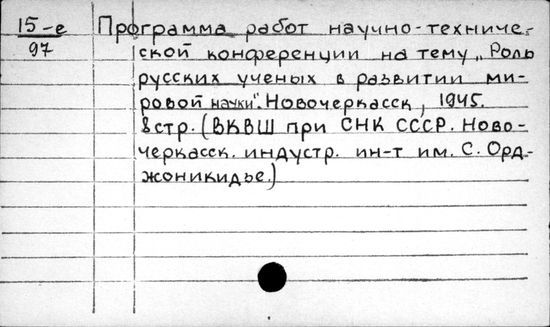 15-е Программа работ научно-техниче-
97 ской конференции на тему „Роль
русских ученых в развитии ми-
ровой науки". Новочеркасск, 1945.
8стр. (ВКВШ при СНК СССР. Ново-
черкасск. индустр. ин-т им. С. Орд-
жоникидье.)